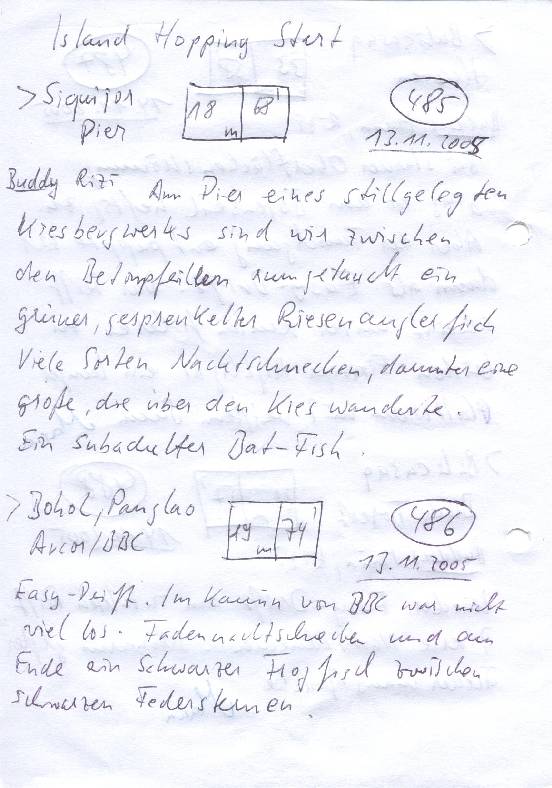 Island Hopping Start
> Siquijor 18 m 68' 485
Pier 13.11.2005
Buddy Rizi Am Pier eines stillgelegten
Kiesbergwerks sind wir zwischen
den Betonpfeilern rumgetaucht ein
grüner, gesprenkelter Riesenanglerfisch
Viele Sorten Nachtschnecken, darunter eine
große, die über den Kies wanderte.
Ein subadulter Bat-Fish.
> Bohol, Panglao 19 m 74' 486
Arcor/BBC 13.11.2005
Easy-Drift. Im Kamin von BBC war nicht
viel los. Fadennacktschnecken und am
Ende ein schwarzer Frogfisch zwischen
schwarzen Federsternen.